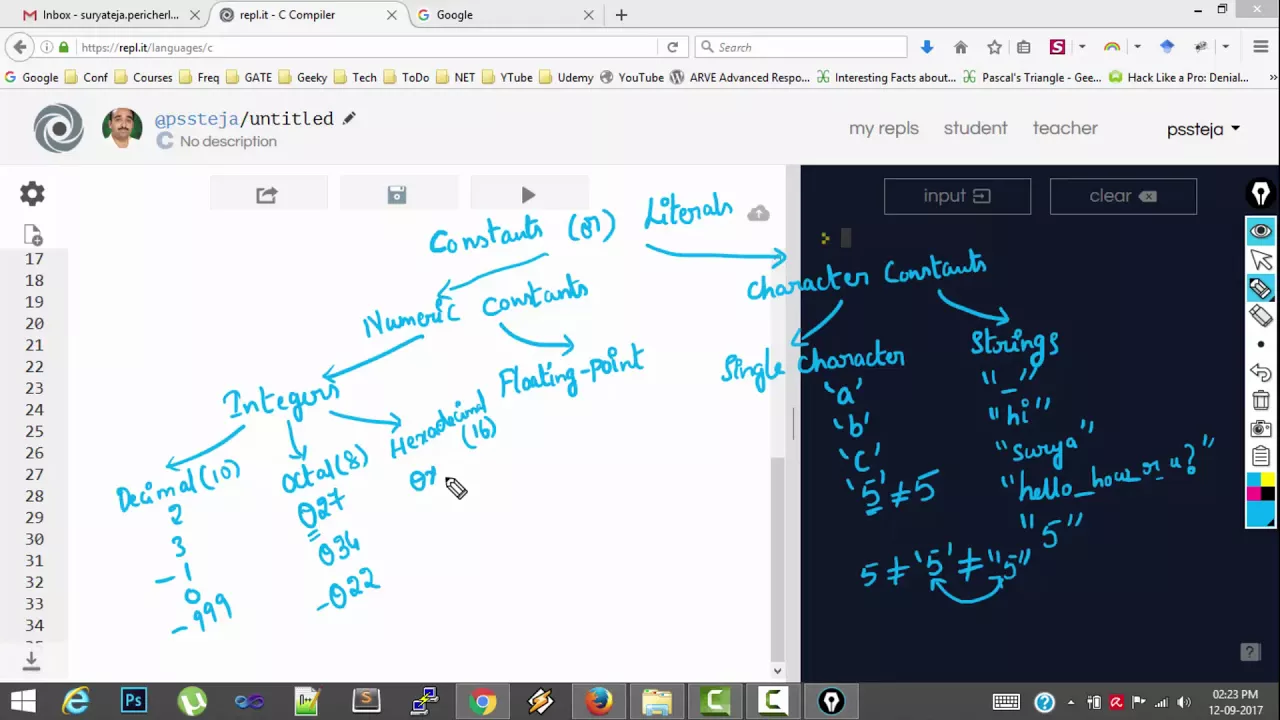 Inbox - suryateja.pericherl...
repl.it - C Compiler
Google
https://repl.it/languages/c
Search
Google Conf Courses Freq GATE Geeky Tech ToDo NET YTube Udemy YouTube ARVE Advanced Respo... Interesting Facts about... Pascal's Triangle - Gee... Hack Like a Pro: Denial...
@pssteja/untitled
C No description
my repls student teacher pssteja
input clear
Constants (or) Literals
Numeric Constants
Character Constants
Integers
Floating-point
Single Character
Strings
Decimal (10)
2
3
-1
0
-999
Octal (8)
027
034
-022
Hexadecimal
(16)
0x
'a'
'b'
'c'
'5' ≠ 5
"_"
"hi"
"surya"
"hello_how_r_u?"
"5"
5 ≠ '5' ≠ "5"
17
18
19
20
21
22
23
24
25
26
27
28
29
30
31
32
33
34
02:23 PM
12-09-2017